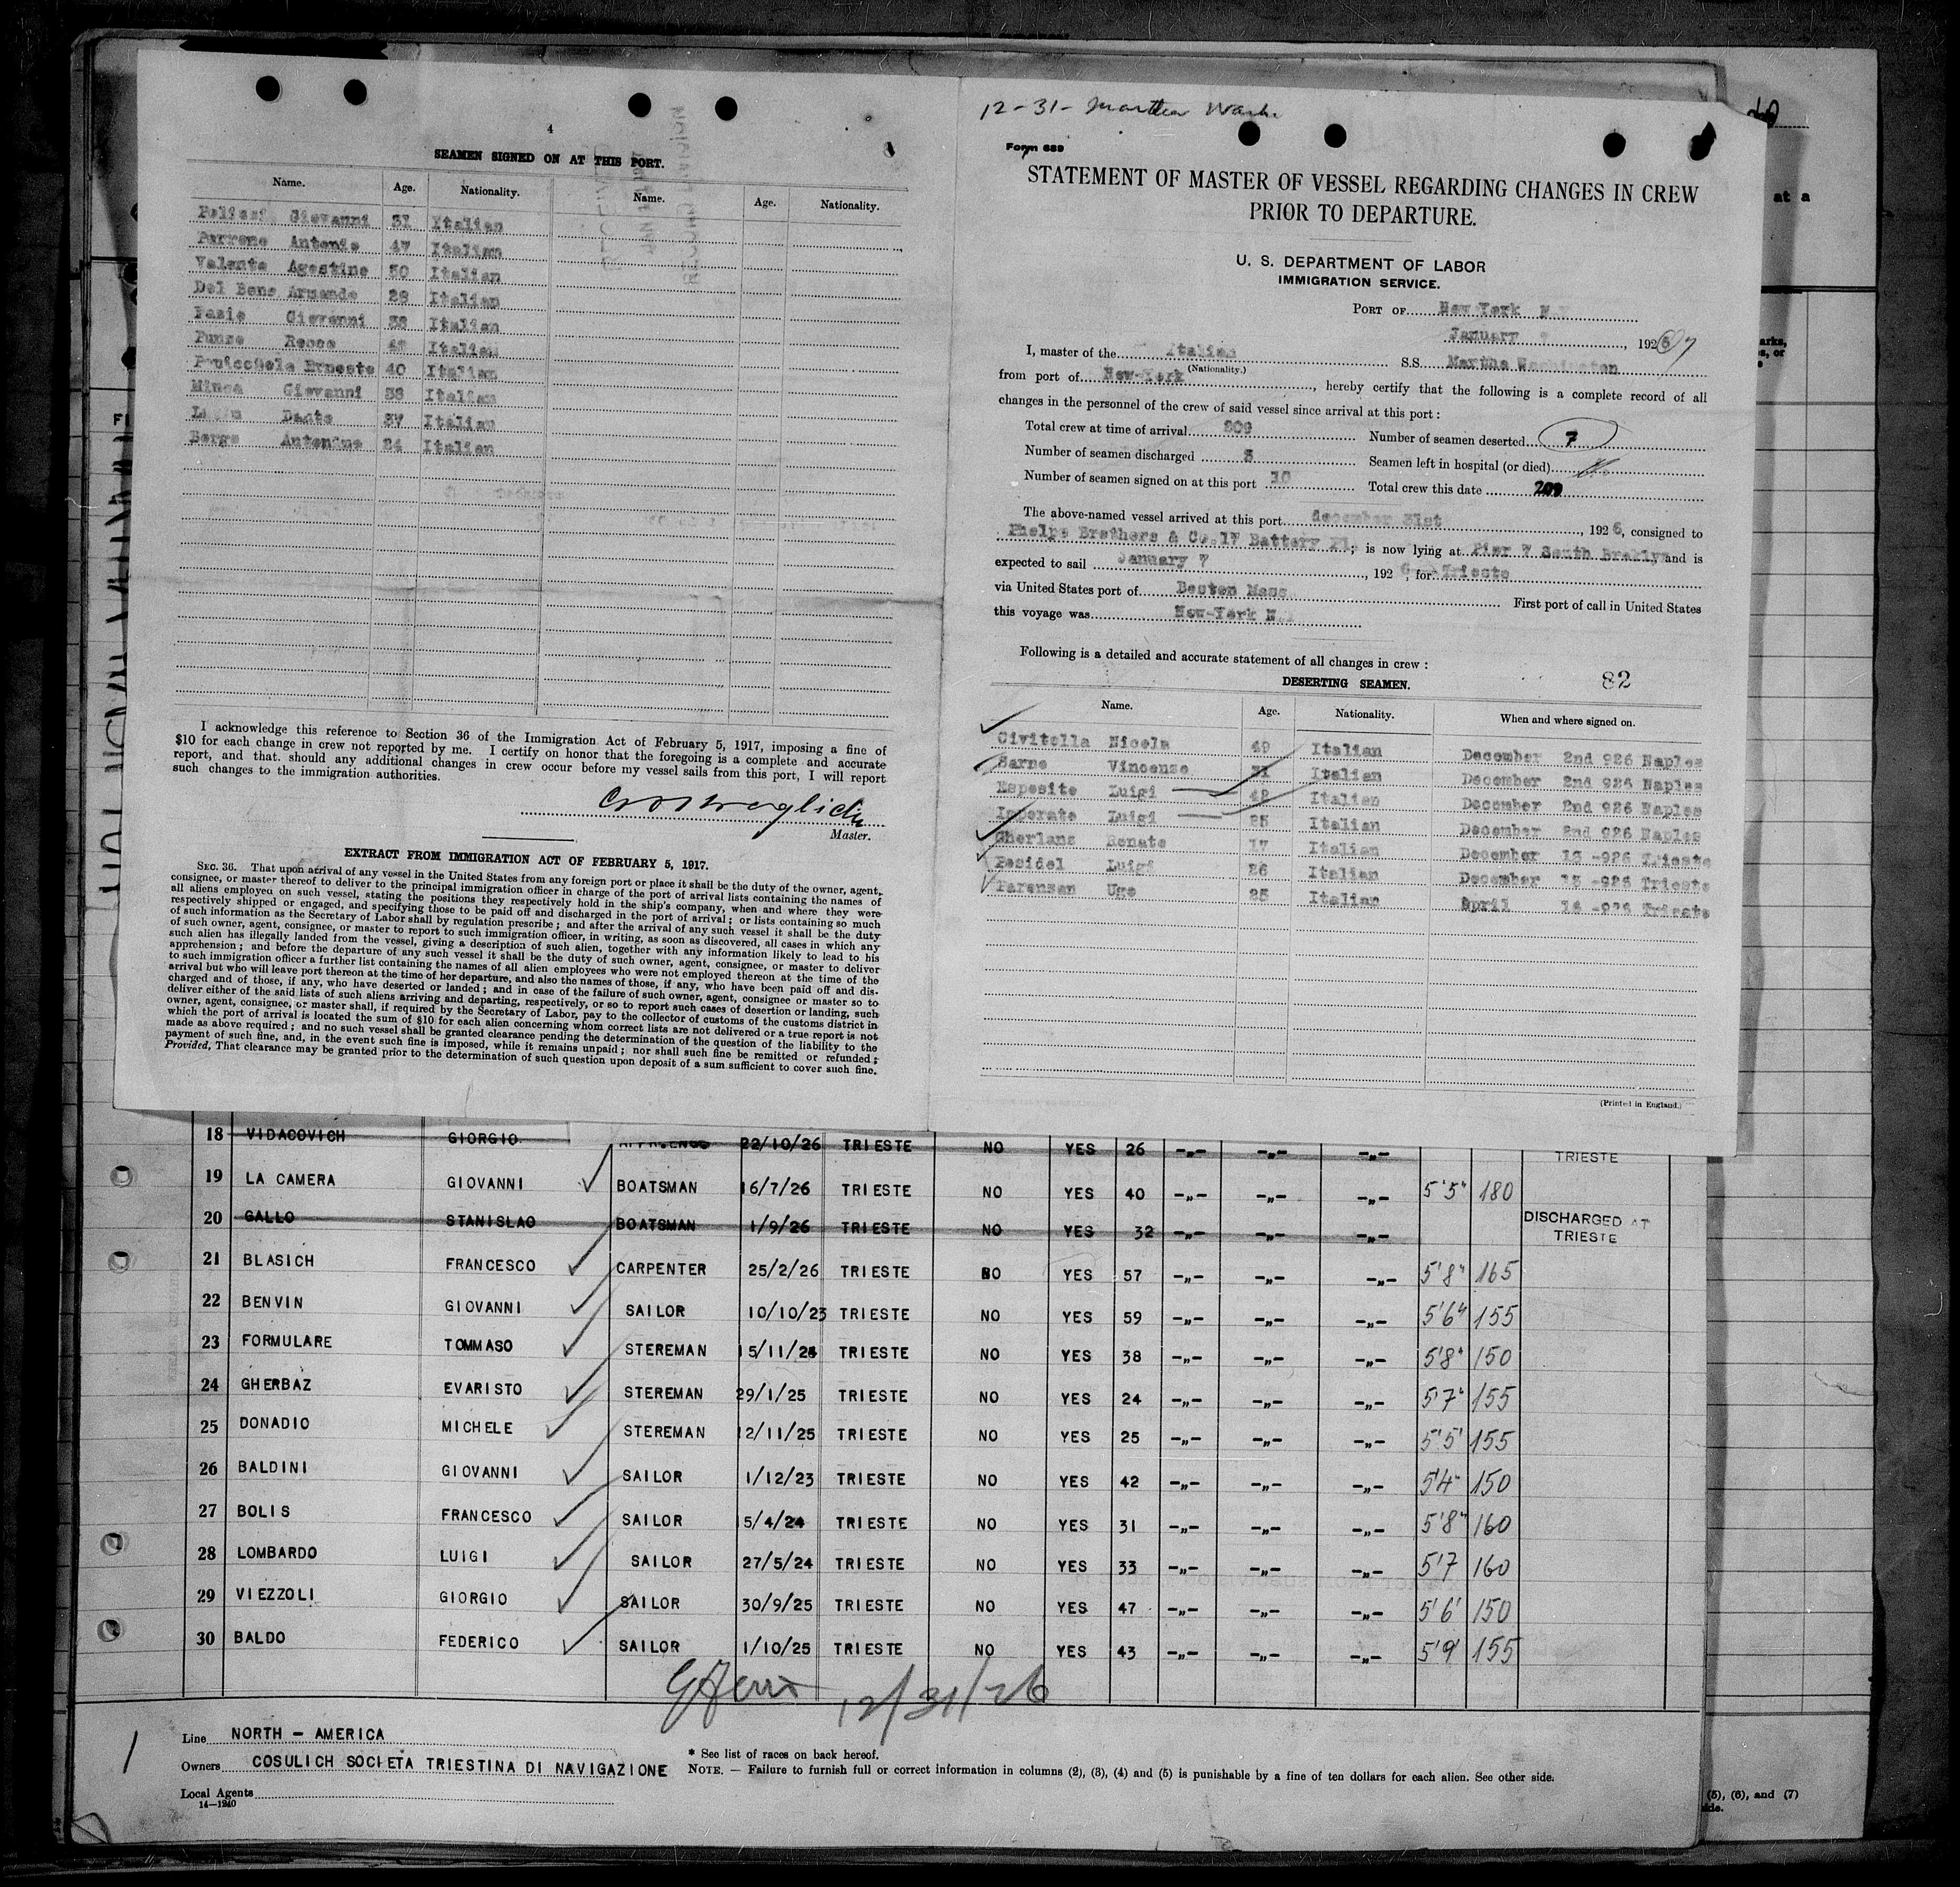 4
SEAMEN SIGNED ON AT THIS PORT.
Name. Age. Nationality. Name. Age. Nationality.
Giovanni 31 Italian
Perrone Antonio 47 Italian
Valente Agostino 30 Italian
Del Bene Armando 28 Italian
Fazio Giovanni 38 Italian
Funze Rocco Italian
Ernesto 40 Italian
Minca Giovanni 38 Italian
Dante 37 Italian
Borge Antonino 24 Italian
I acknowledge this reference to Section 36 of the Immigration Act of February 5, 1917, imposing a fine of
$10 for each change in crew not reported by me. I certify on honor that the foregoing is a complete and accurate
report, and that. should any additional changes in crew occur before my vessel sails from this port, I will report
such changes to the immigration authorities.
Master.
EXTRACT FROM IMMIGRATION ACT OF FEBRUARY 5, 1917.
SEC. 36. That upon arrival of any vessel in the United States from any foreign port or place it shall be the duty of the owner, agent,
consignee, or master thereof to deliver to the principal immigration officer in charge of the port of arrival lists containing the names of
all aliens employed on such vessel, stating the positions they respectively hold in the ship's company, when and where they were
respectively shipped or engaged, and specifying those to be paid off and discharged in the port of arrival; or lists containing so much
of such information as the Secretary of Labor shall by regulation prescribe; and after the arrival of any such vessel it shall be the duty
of such owner, agent, consignee, or master to report to such immigration officer, in writing, as soon as discovered, all cases in which any
such alien has illegally landed from the vessel, giving a description of such alien, together with any information likely to lead to his
apprehension; and before the departure of any such vessel it shall be the duty of such owner, agent, consignee, or master to deliver
to such immigration officer a further list containing the names of all alien employees who were not employed thereon at the time of the
arrival but who will leave port thereon at the time of her departure, and also the names of those, if any, who have been paid off and dis-
charged and of those, if any, who have deserted or landed; and in case of the failure of such owner, agent, consignee or master so to
deliver either of the said lists of such aliens arriving and departing, respectively, or so to report such cases of desertion or landing, such
owner, agent, consignee, or master shall, if required by the Secretary of Labor, pay to the collector of customs of the customs district in
which the port of arrival is located the sum of $10 for each alien concerning whom correct lists are not delivered or a true report is not
made as above required; and no such vessel shall be granted clearance pending the determination of the question of the liability to the
payment of such fine, and, in the event such fine is imposed, while it remains unpaid; nor shall such fine be remitted or refunded:
Provided, That clearance may be granted prior to the determination of such question upon deposit of a sum sufficient to cover such fine.
12-31- Martha Wash
Form 689
STATEMENT OF MASTER OF VESSEL REGARDING CHANGES IN CREW
PRIOR TO DEPARTURE.
U. S. DEPARTMENT OF LABOR
IMMIGRATION SERVICE.
PORT OF New York N.Y
January 7, 192 6 7
I, master of the Italian S.S. Martha Washington
(Nationality.)
from port of New-York, hereby certify that the following is a complete record of all
changes in the personnel of the crew of said vessel since arrival at this port :
Total crew at time of arrival 209 Number of seamen deserted 7
Number of seamen discharged 3 Seamen left in hospital (or died)
Number of seamen signed on at this port 10 Total crew this date 209
The above-named vessel arrived at this port december 31st, 192 6, consigned to
Phelps Brothers & Co. 17 Battery Pl, is now lying at Pier 7 South Broklyn and is
expected to sail January 7, 192 6, for Trieste
via United States port of Boston Mass. First port of call in United States
this voyage was New-York N.
Following is a detailed and accurate statement of all changes in crew :
DESERTING SEAMEN. 82
Name. Age. Nationality. When and where signed on.
Civitella Nicola 49 Italian December 2nd 926 Naples
Sarno Vincenzo 31 Italian December 2nd 926 Naples
Esposito Luigi 42 Italian December 2nd 926 Naples
Imperato Luigi 25 Italian December 2nd 926 Naples
Gherlans Renato 17 Italian December 13 -926 Trieste
Posidel Luigi 26 Italian December 13 -926 Trieste
Parenzan Ugo 25 Italian April 14 -926 Trieste
(Printed in England.)
18 VIDACOVICH GIORGIO 22/10/26 TRIESTE NO YES 26 -„- -„- -„- TRIESTE
19 LA CAMERA GIOVANNI BOATSMAN 16/7/26 TRIESTE NO YES 40 -„- -„- -„- 5'5" 180
20 GALLO STANISLAO BOATSMAN 1/9/26 TRIESTE NO YES 32 -„- -„- -„- DISCHARGED AT
TRIESTE
21 BLASICH FRANCESCO CARPENTER 25/2/26 TRIESTE NO YES 57 -„- -„- -„- 5'8" 165
22 BENVIN GIOVANNI SAILOR 10/10/23 TRIESTE NO YES 59 -„- -„- -„- 5'6" 155
23 FORMULARE TOMMASO STEREMAN 15/11/24 TRIESTE NO YES 38 -„- -„- -„- 5'8" 150
24 GHERBAZ EVARISTO STEREMAN 29/1/25 TRIESTE NO YES 24 -„- -„- -„- 5'7" 155
25 DONADIO MICHELE STEREMAN 12/11/25 TRIESTE NO YES 25 -„- -„- -„- 5'5' 155
26 BALDINI GIOVANNI SAILOR 1/12/23 TRIESTE NO YES 42 -„- -„- -„- 5'4" 150
27 BOLIS FRANCESCO SAILOR 15/4/24 TRIESTE NO YES 31 -„- -„- -„- 5'8" 160
28 LOMBARDO LUIGI SAILOR 27/5/24 TRIESTE NO YES 33 -„- -„- -„- 5'7 160
29 VIEZZOLI GIORGIO SAILOR 30/9/25 TRIESTE NO YES 47 -„- -„- -„- 5'6' 150
30 BALDO FEDERICO SAILOR 1/10/25 TRIESTE NO YES 43 -„- -„- -„- 5'9' 155
12/31/26
Line NORTH - AMERICA
Owners COSULICH SOCIETA TRIESTINA DI NAVIGAZIONE
Local Agents
14-1240
* See list of races on back hereof.
NOTE. — Failure to furnish full or correct information in columns (2), (3), (4) and (5) is punishable by a fine of ten dollars for each alien. See other side.
at a
(5), (6), and (7)